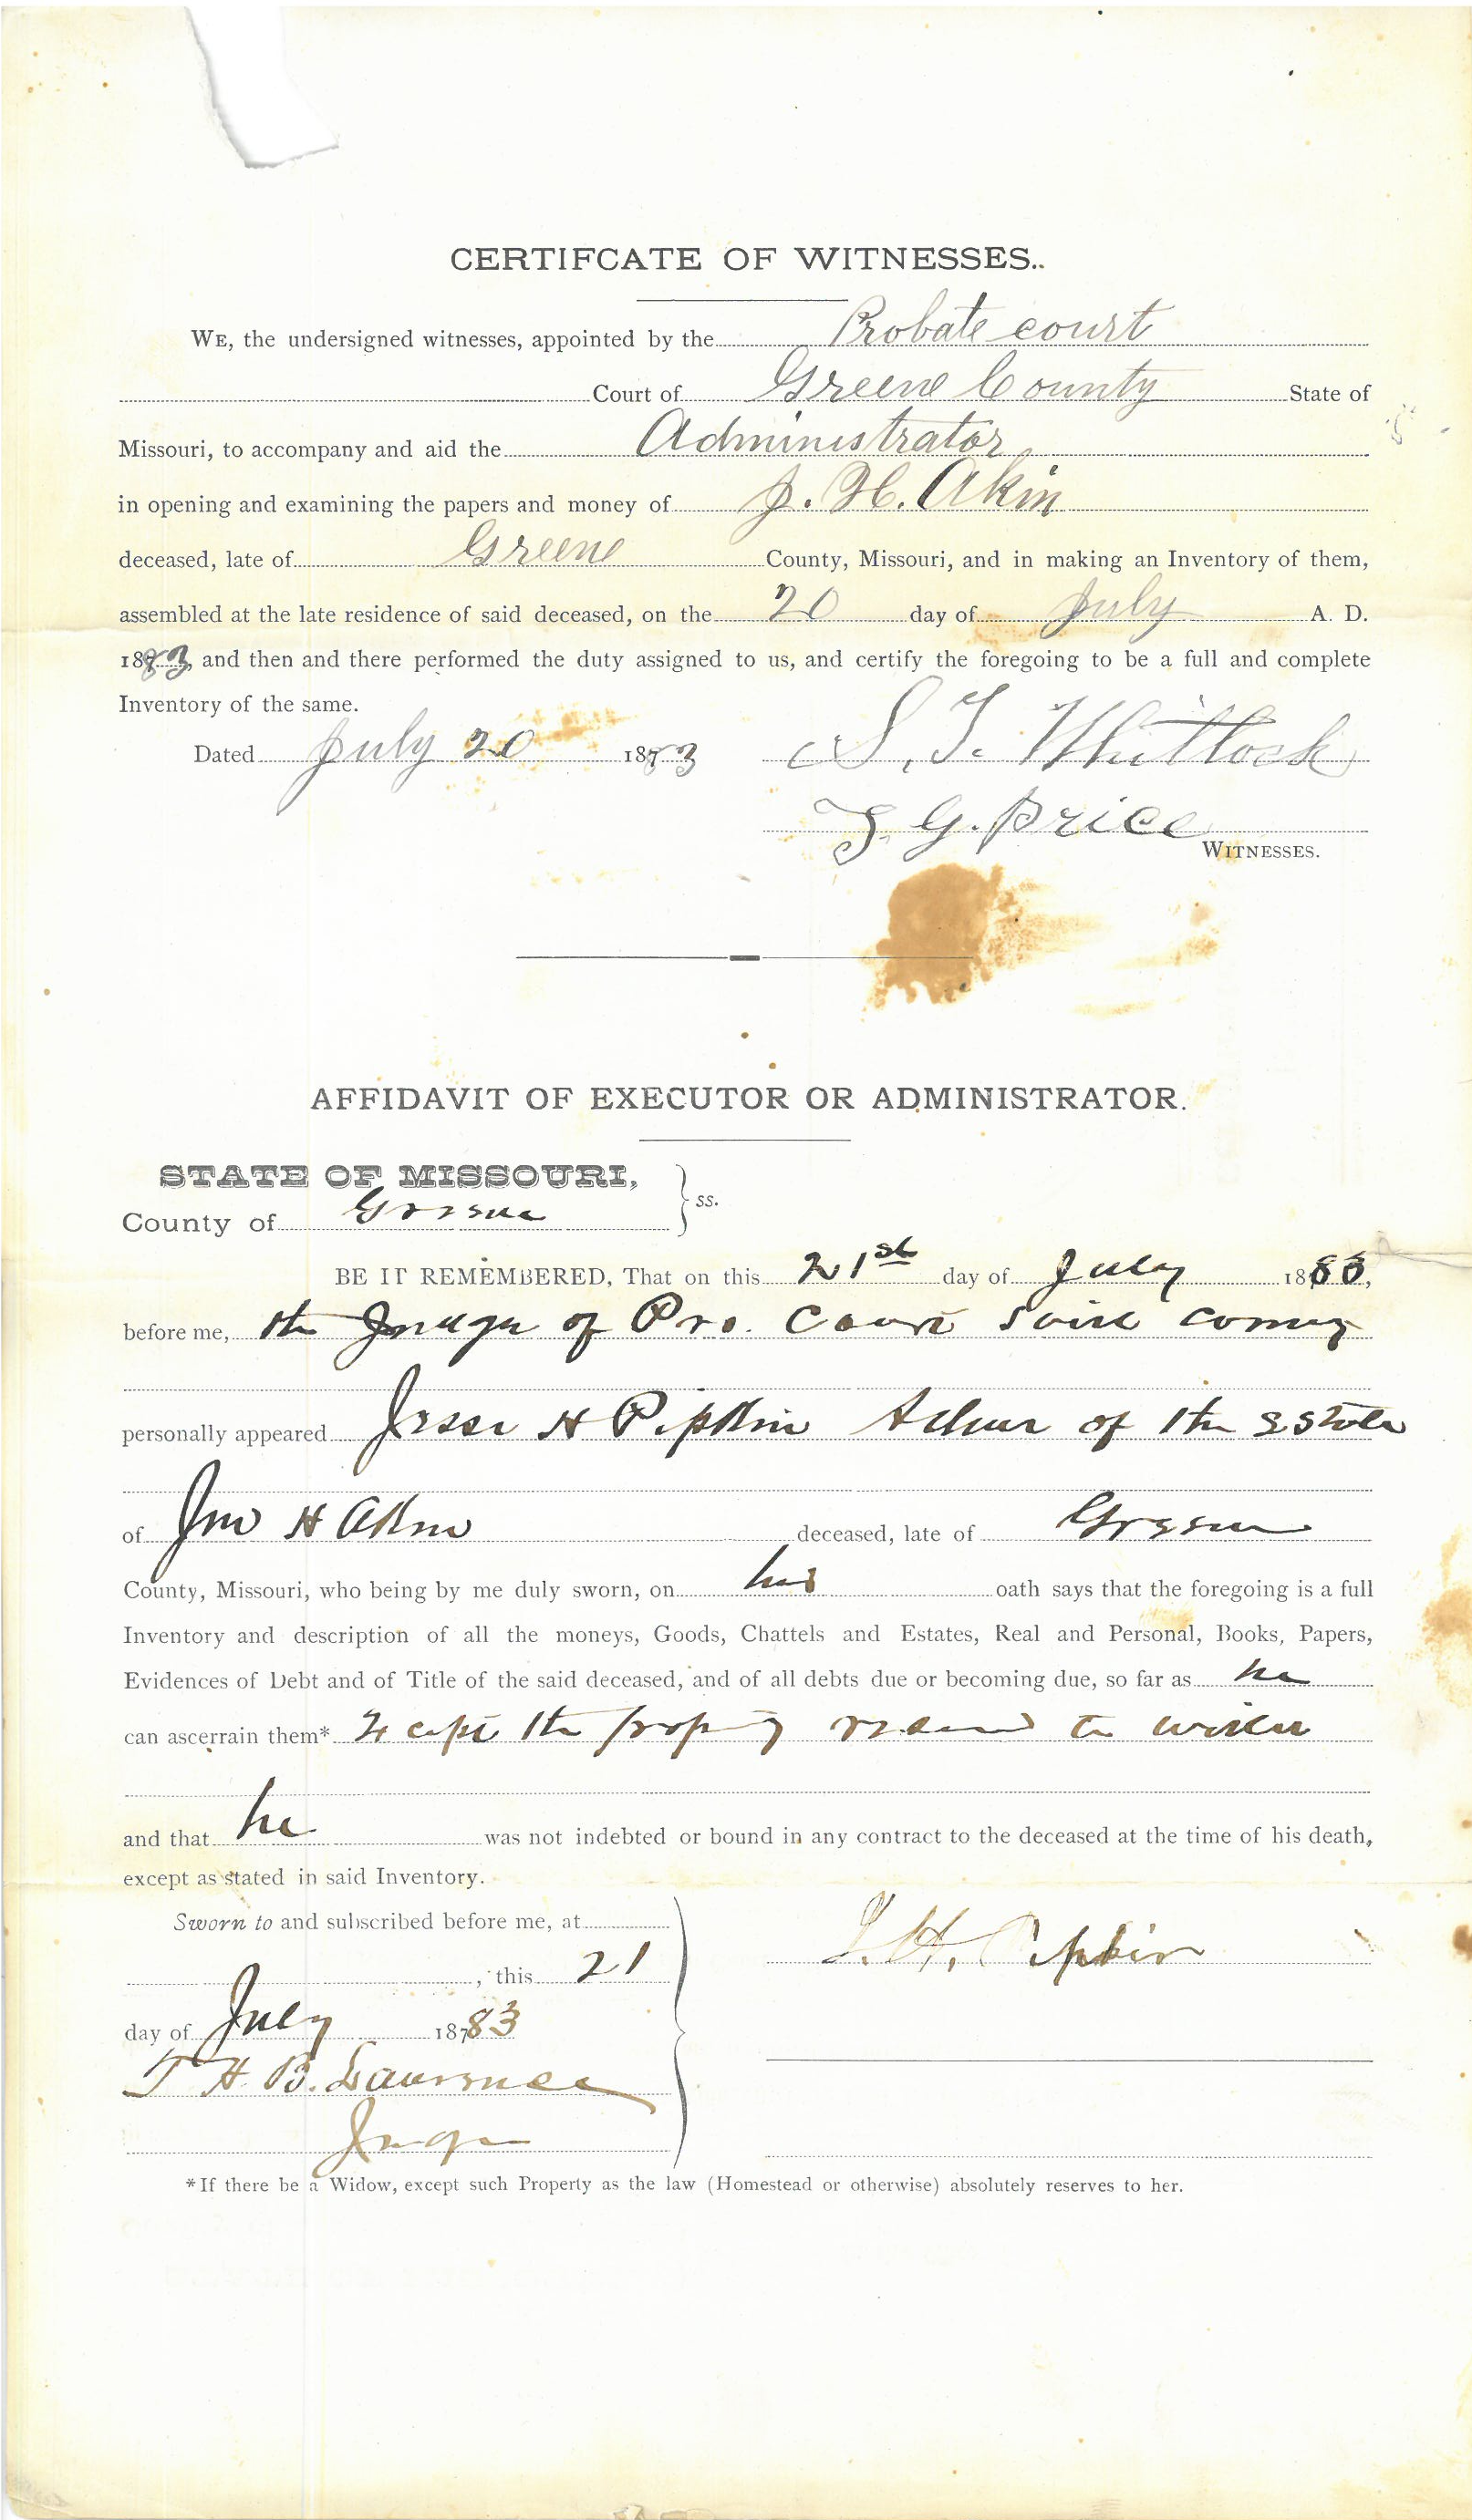 CERTIFCATE OF WITNESSES..
WE, the undersigned witnesses, appointed by the Probate court
Court of Greene County State of
Missouri, to accompany and aid the Administrator
in opening and examining the papers and money of J. H. Akin
deceased, late of Greene County, Missouri, and in making an Inventory of them,
assembled at the late residence of said deceased, on the 20 day of July A. D.
1883, and then and there performed the duty assigned to us, and certify the foregoing to be a full and complete
Inventory of the same.
Dated July 20 1883 S. T. Whitlock
G. Price
WITNESSES.
AFFIDAVIT OF EXECUTOR OR ADMINISTRATOR.
STATE OF MISSOURI,
County of Greene } ss.
BE IT REMEMBERED, That on this 21st day of July 1883,
before me, the Judge of Pro. Court Said County
personally appeared Jesse H Pipkin Admr of the Estate
of Jno H Akin deceased, late of Greene
County, Missouri, who being by me duly sworn, on his oath says that the foregoing is a full
Inventory and description of all the moneys, Goods, Chattels and Estates, Real and Personal, Books, Papers,
Evidences of Debt and of Title of the said deceased, and of all debts due or becoming due, so far as he
can ascerrain them* Except the property to widow
and that he was not indebted or bound in any contract to the deceased at the time of his death,
except as stated in said Inventory.
Sworn to and subscribed before me, at
, this 21 J. H. Pipkin
day of July 18783
T H. B. Lawrence
Judge
*If there be a Widow, except such Property as the law (Homestead or otherwise) absolutely reserves to her.